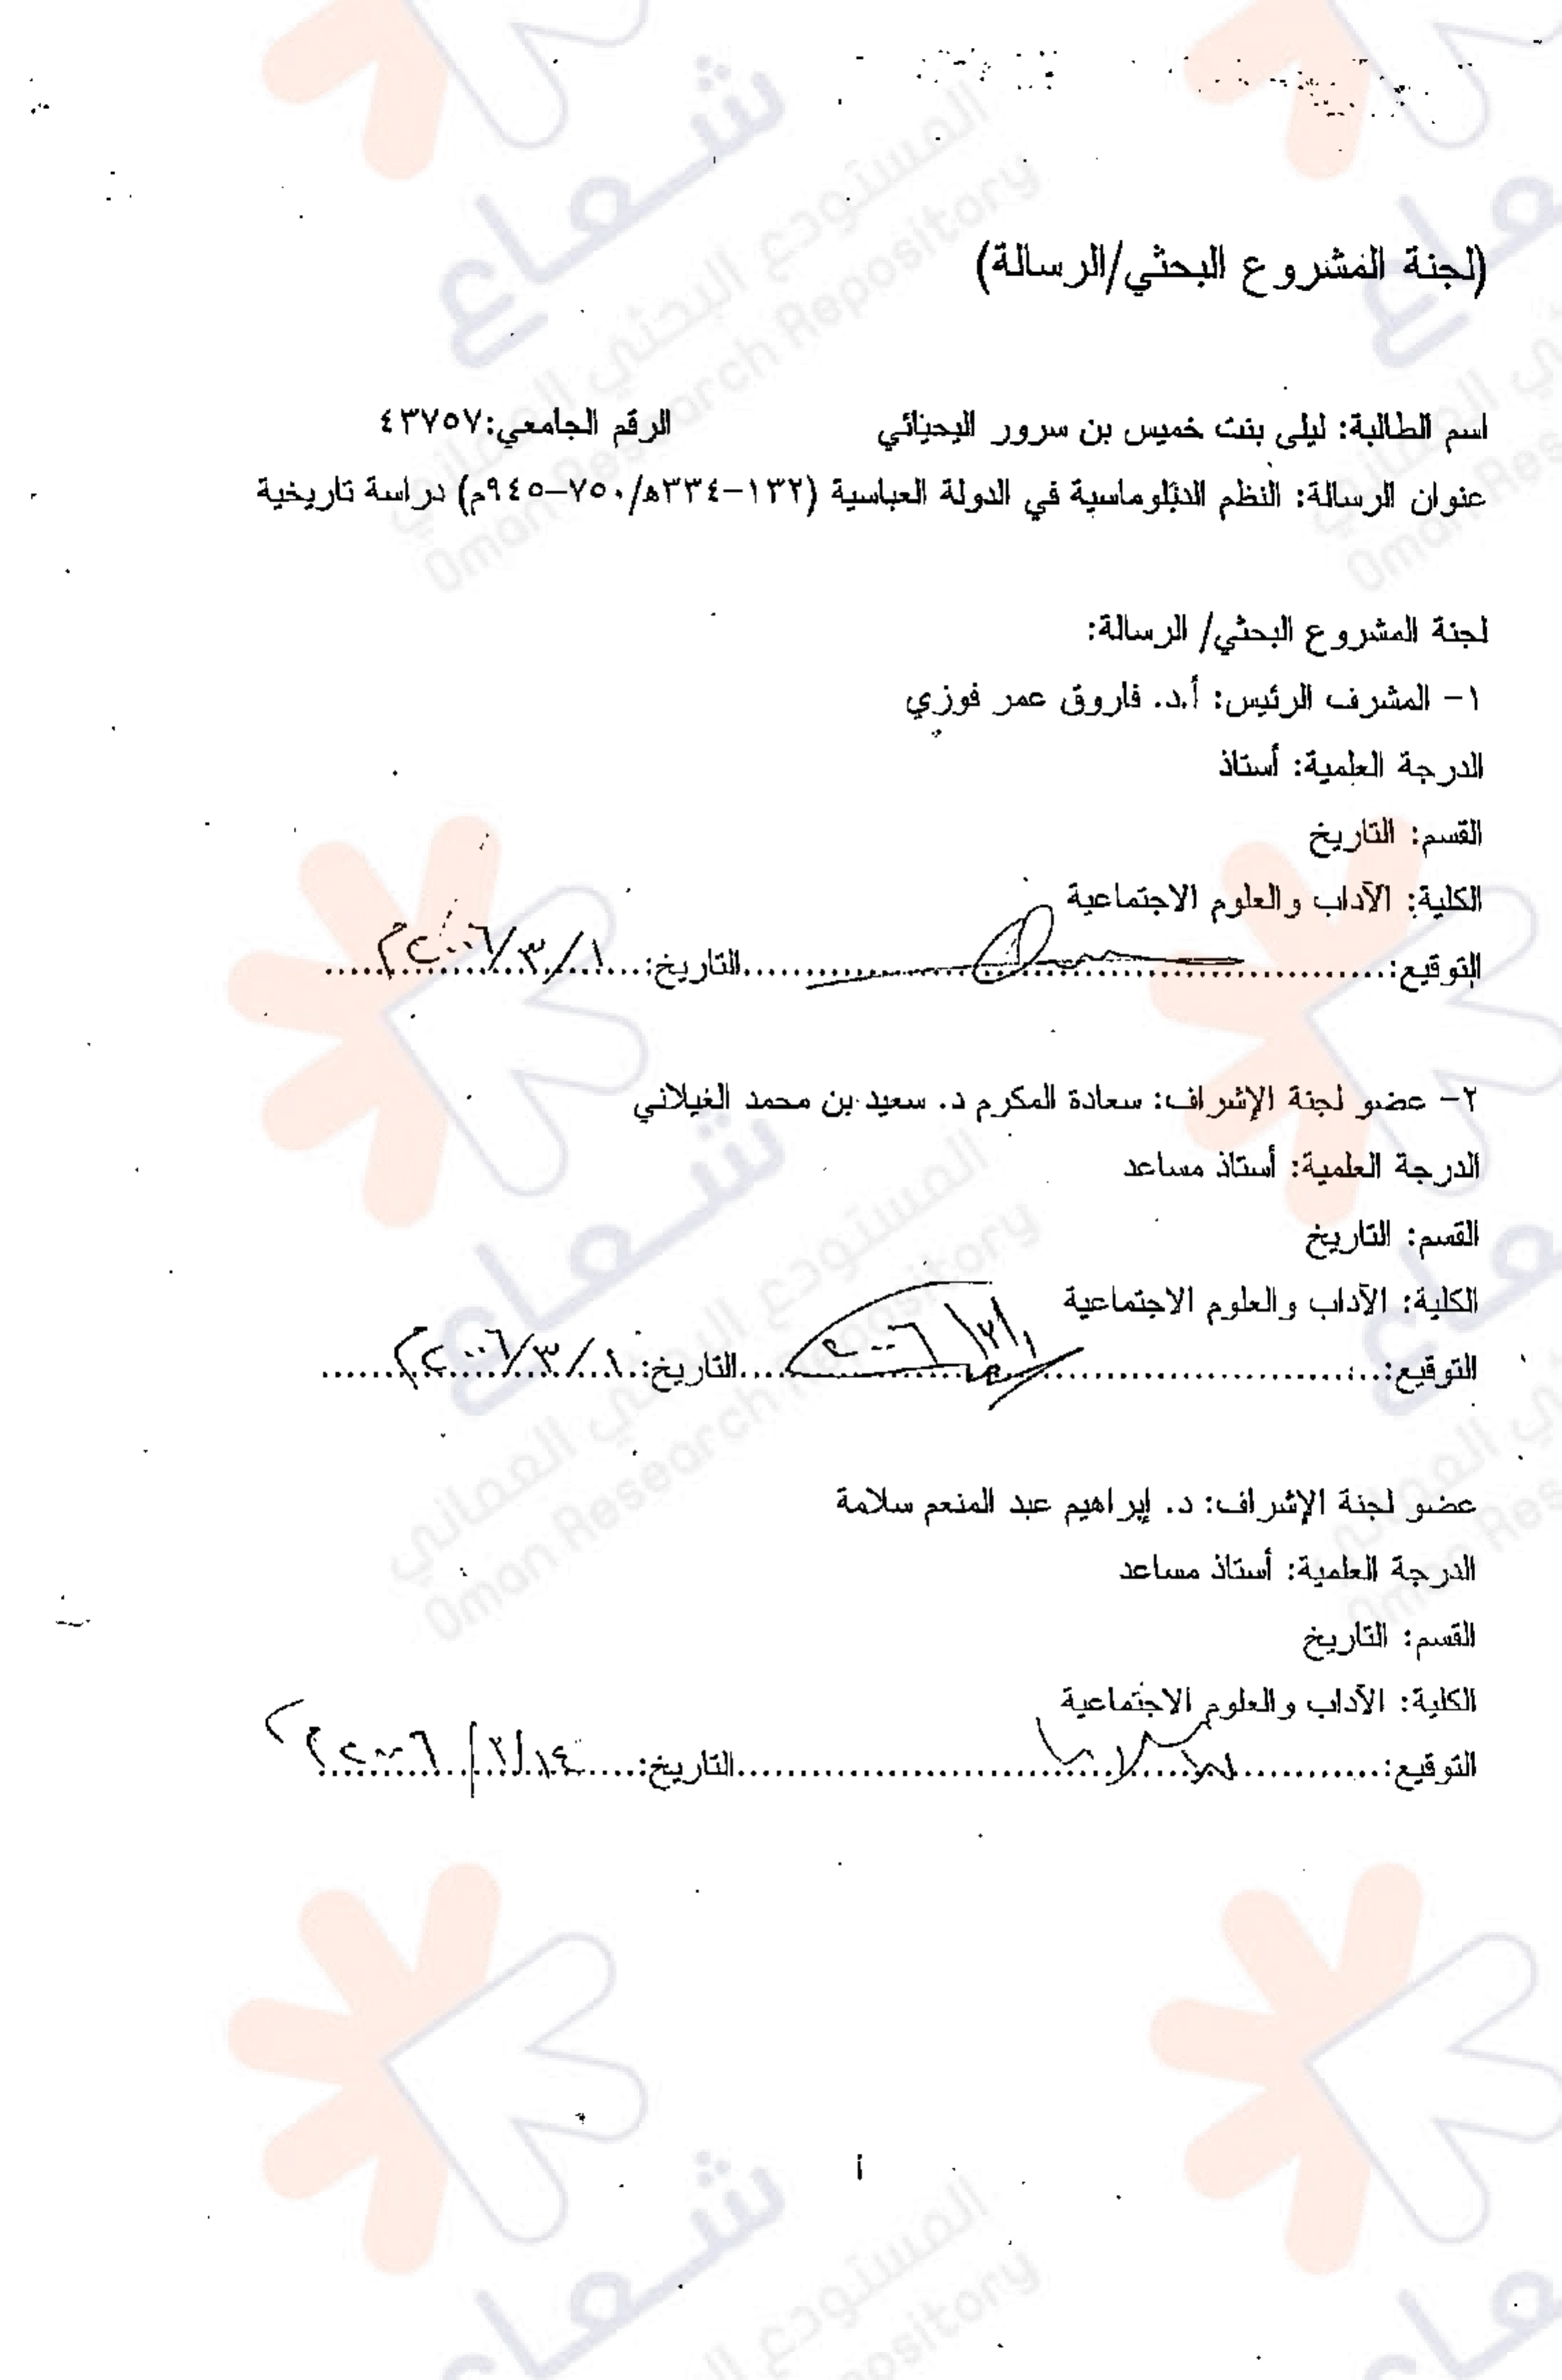 (لجنة المشروع البحثي/الرسالة)
اسم الطالبة: ليلى بنت خميس بن سرور البحيائي الرقم الجامعي:٤٣٧٥٧
عنوان الرسالة: النظم الدبلوماسية في الدولة العباسية (١٣٢-٣٣٤ه/٧٥٠-٩٤٥م) دراسة تاريخية
لجنة المشروع البحثي/ الرسالة:
١- المشرف الرئيس: أ.د. فاروق عمر فوزي
الدرجة العلمية: أستاذ
القسم: التاريخ
الكلية: الآداب والعلوم الاجتماعية
التوقيع:..............................التاريخ: ١/٣/٢٠٠٦م
٢- عضو لجنة الإشراف: سعادة المكرم د. سعيد بن محمد الغيلاني
الدرجة العلمية: أستاذ مساعد
القسم: التاريخ
الكلية: الآداب والعلوم الاجتماعية
التوقيع:.............................. ١/٣/٢٠٠٦ التاريخ: ١/٣/٢٠٠٦م
عضو لجنة الإشراف: د. إبراهيم عبد المنعم سلامة
الدرجة العلمية: أستاذ مساعد
القسم: التاريخ
الكلية: الآداب والعلوم الاجتماعية
التوقيع:..............................التاريخ: ١٤/٣/٢٠٠٦م
أ
شعاع
المستودع البحثي العماني
Oman Research Repository